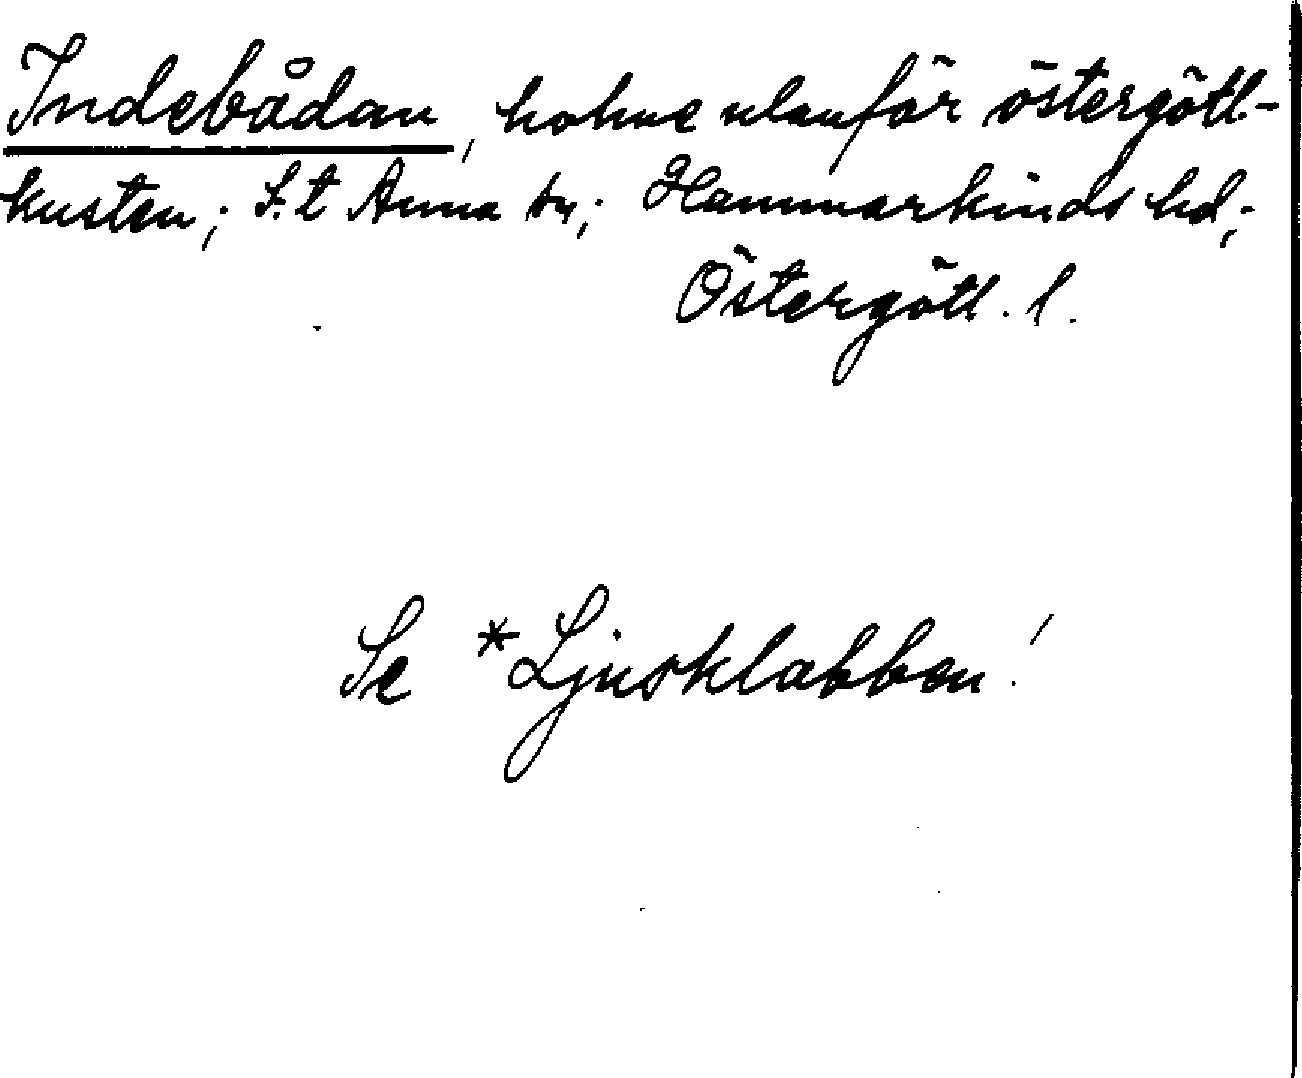 Indebådan, holme utanför östergötl.-
kusten; S:t Anna sn; Hammarkinds hd;
Östergötl. l.
Se *Ljusklabben!